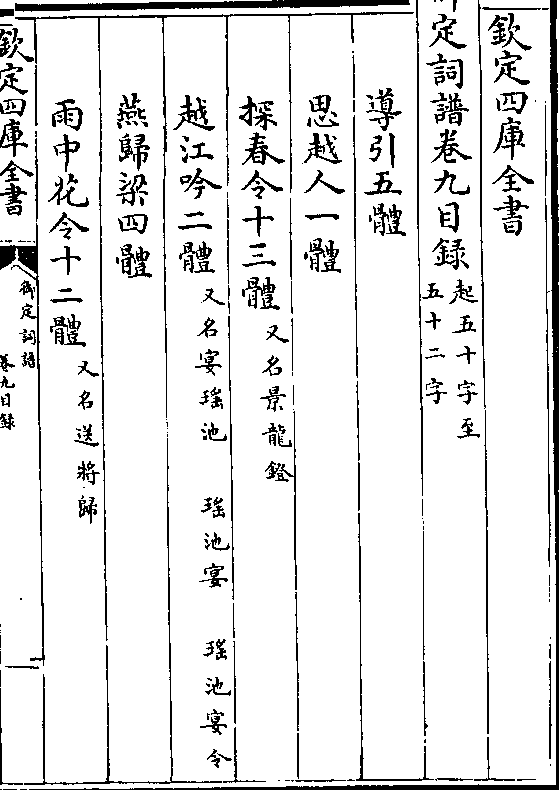 欽定四庫全書
御定詞譜卷九目録 起五十字至五十二字
導引五體
思越人一體
探春令十三體 又名景龍鐙
越江吟二體 又名宴瑤池 瑤池宴 瑤池宴令
燕歸梁四體
雨中花令十二體 又名送將歸
欽定四庫全書
御定詞譜
卷九目録